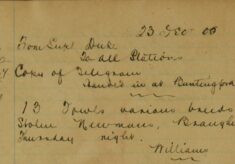 23 Dec 05
From Supt
To all Stations
Copy of Telegram
handed in at Buntingford
13 Fowls various breeds
Stolen Newmans, Braughing
Thursday night.
Williams